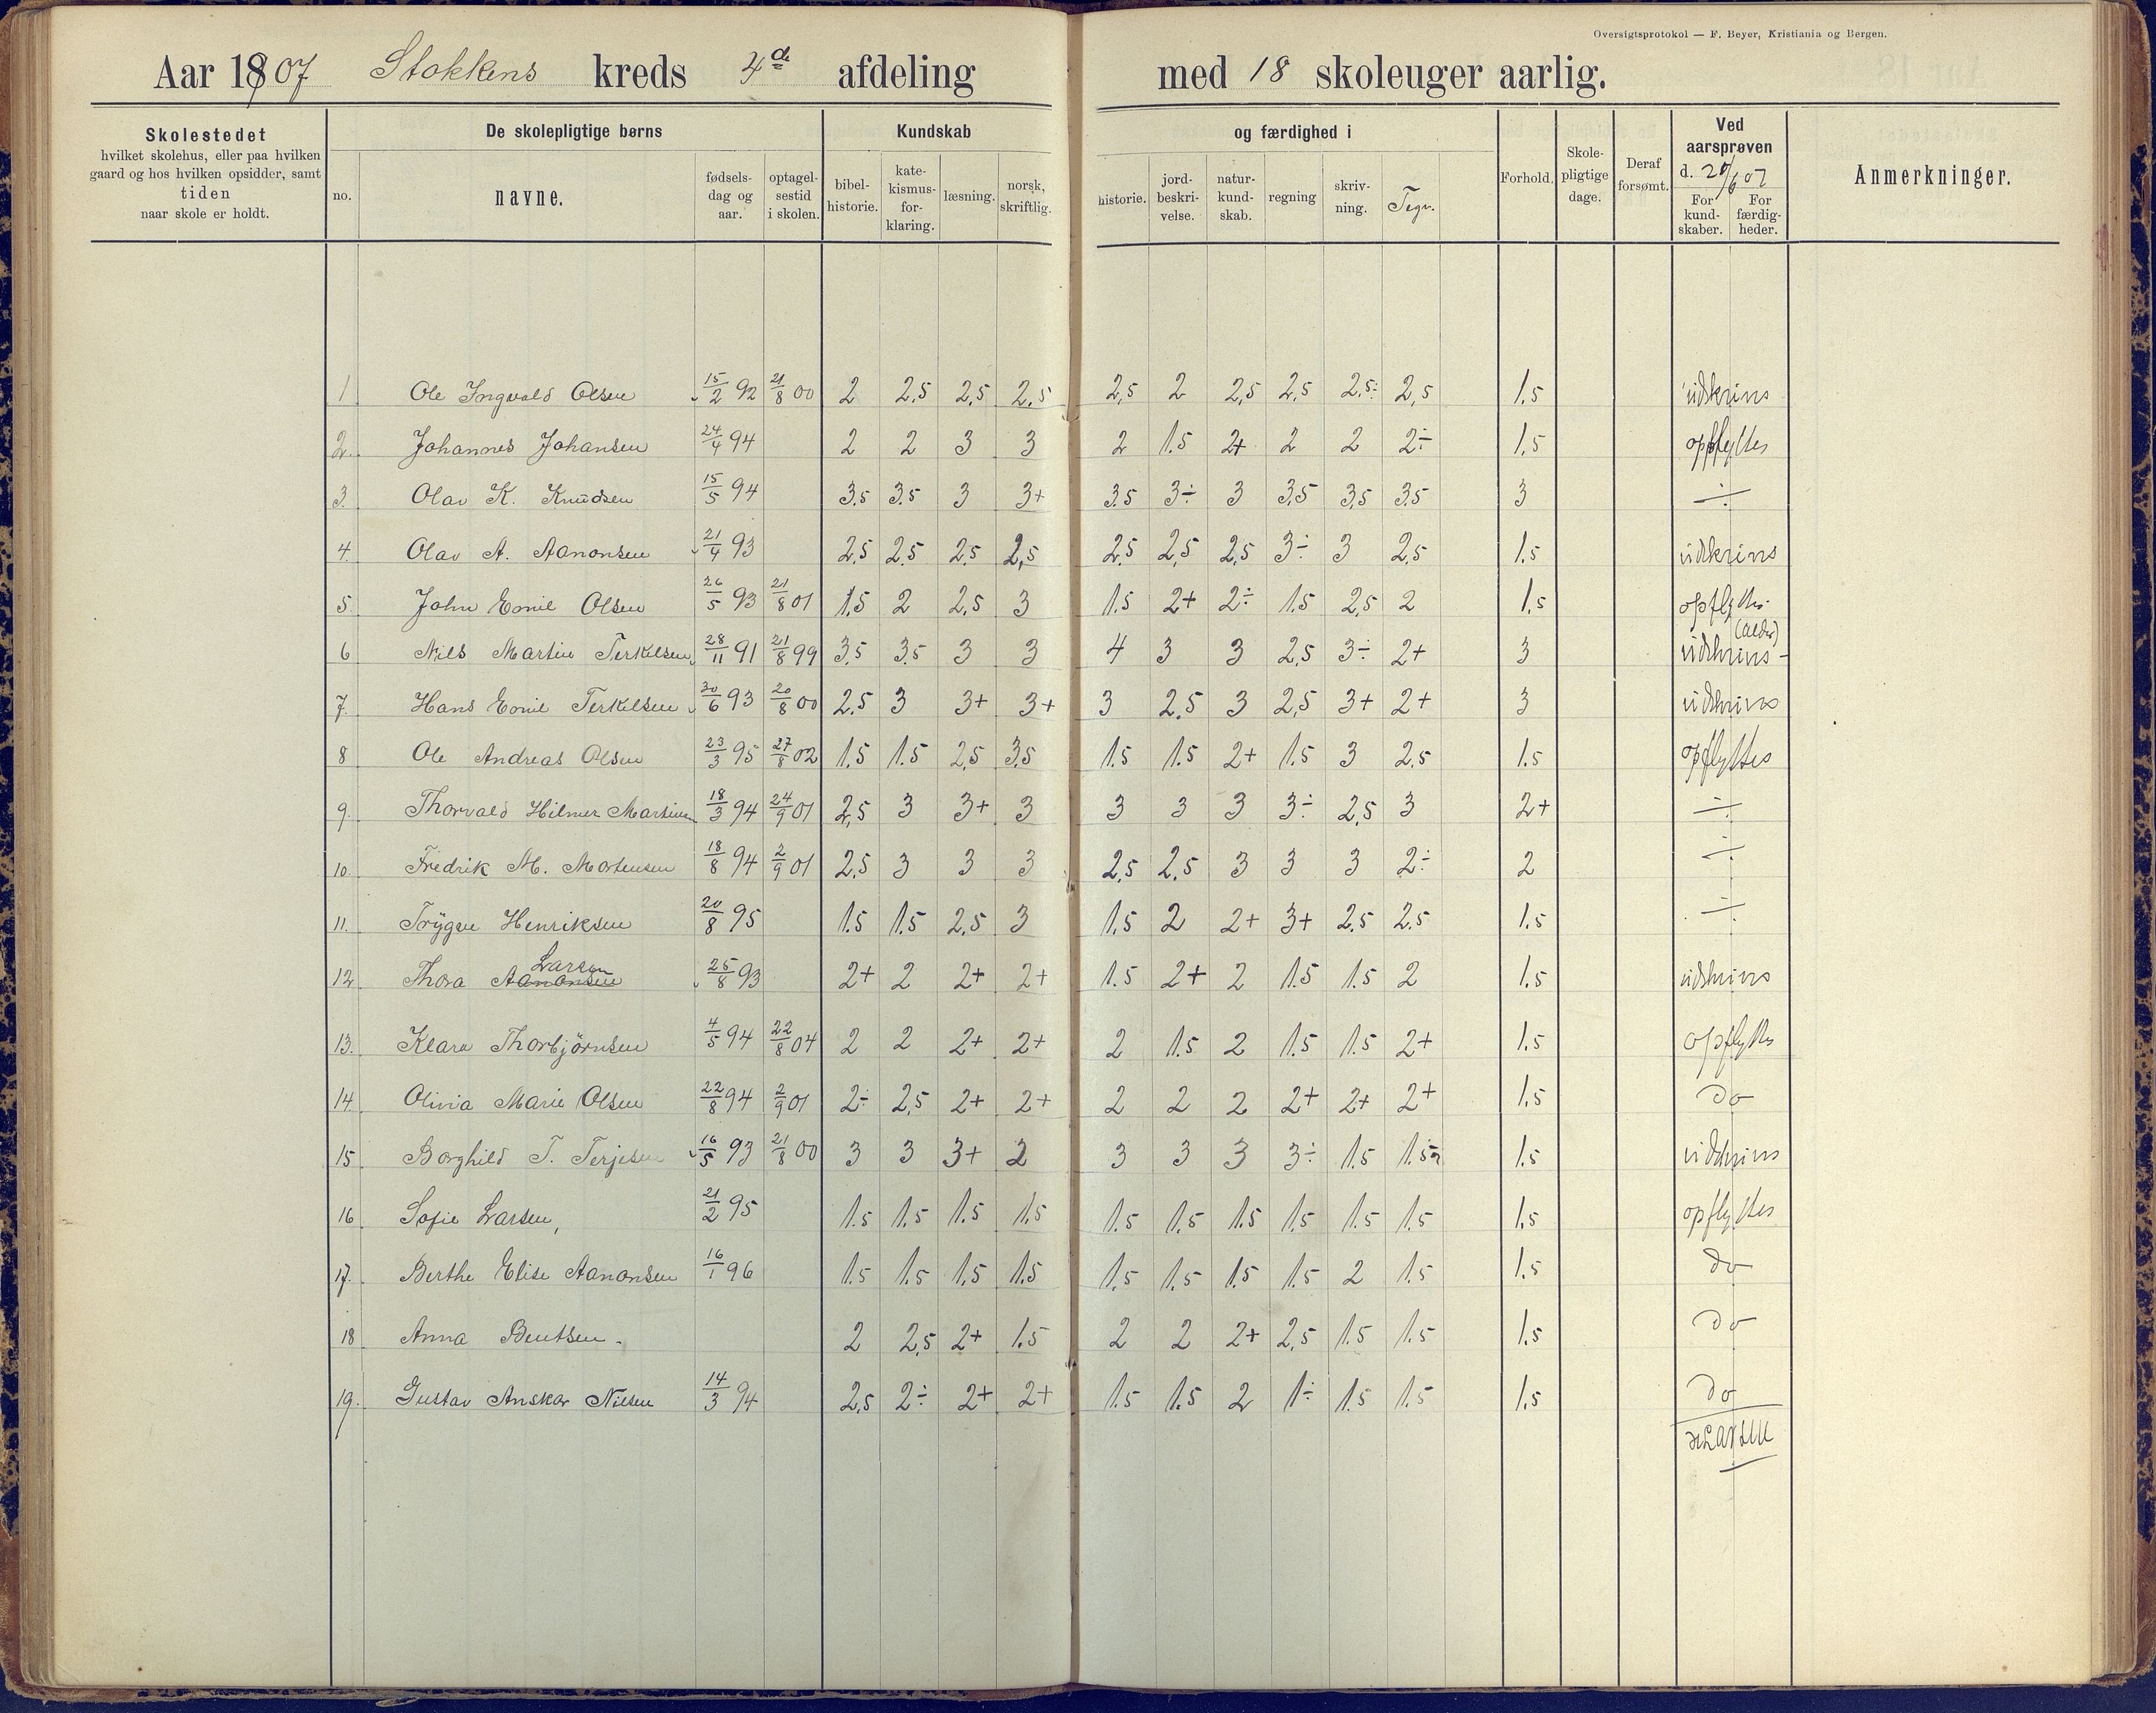 Oversigtsprotokol — F. Beyer, Kristiania og Bergen.
Aar 1907 Stokkens kreds 4de afdeling med 18 skoleuger aarlig.
Skolestedet
hvilket skolehus, eller paa hvilken
gaard og hos hvilken opsidder, samt
tiden
naar skole er holdt.
De skolepligtige børns
no. navne. fødsels-dag og aar. optagel-sestid i skolen.
Kundskab og færdighed i
bibel-historie. kate-kismus-for-klaring. læsning. norsk, skriftlig. historie. jord-beskri-velse. natur-kund-skab. regning skriv-ning. Tegn.
Forhold. Skole-pligtige dage. Deraf forsømt.
Ved aarsprøven d. 29/6 07
For kund-skaber. For færdig-heder.
Anmerkninger.
1 Ole Ingvald Olsen 15/2 92 21/8 00 2 2,5 2,5 2,5 2,5 2 2,5 2,5 2,5÷ 2,5 1,5 udskrives
2. Johannes Johansen 24/4 94 2 2 3 3 2 1.5 2+ 2 2 2÷ 1,5 opflyttes
3. Olav K. Knudsen 15/5 94 3.5 3.5 3 3+ 3.5 3÷ 3 3,5 3,5 3.5 3 ÷
4. Olav A. Aanonsen 21/4 93 2.5 2.5 2.5 2,5 2.5 2,5 2,5 3÷ 3 2,5 1.5 udskrives
5. John Emil Olsen 26/5 93 21/8 01 1.5 2 2,5 3 1.5 2+ 2÷ 1.5 2,5 2 1,5 opflyttes
6 Nils Martin Terkelsen 28/11 91 21/8 99 3.5 3.5 3 3 4 3 3 2,5 3÷ 2+ 3 udskrives (alder)
7. Hans Emil Terkelsen 30/6 93 20/8 00 2.5 3 3+ 3+ 3 2.5 3 2,5 3+ 2+ 3 udskrives
8 Ole Andreas Olsen 23/3 95 27/8 02 1.5 1.5 2,5 3.5 1.5 1.5 2+ 1.5 3 2.5 1.5 opflyttes
9. Thorvald Hilmer Martinsen 18/3 94 24/9 01 2,5 3 3+ 3 3 3 3 3÷ 2,5 3 2+ ÷
10. Fredrik M. Mortensen 18/8 94 2/9 01 2,5 3 3 3 2,5 2,5 3 3 3 2÷ 2 ÷
11. Trygve Henriksen 20/8 95 1.5 1.5 2,5 3 1.5 2 2+ 3+ 2,5 2.5 1.5 ÷
12 Thora Aanonsen Larsen 25/8 93 2+ 2 2+ 2+ 1.5 2+ 2 1.5 1.5 2 1.5 udskrives
13. Klara Thorbjörnsen 4/5 94 22/8 04 2 2 2+ 2+ 2 1.5 2 1.5 1.5 2+ 1.5 opflyttes
14. Olivia Marie Olsen 22/8 94 2/9 01 2÷ 2,5 2+ 2+ 2 2 2 2+ 2+ 2+ 1.5 do
15 Borghild T. Terjesen 16/5 93 21/8 00 3 3 3+ 2 3 3 3 3÷ 1.5 1.5÷ 1.5 udskrives
16 Sofie Larsen, 21/2 95 1.5 1.5 1.5 1,5 1.5 1.5 1.5 1.5 1.5 1.5 1,5 opflyttes
17. Berthe Elise Aanonsen 16/1 96 1.5 1.5 1,5 1.5 1.5 1.5 1.5 1.5 2 1.5 1.5 do
18 Anna Bentsen. 2 2,5 2+ 1.5 2 2 2+ 2,5 1.5 1.5 1.5 do
19. Gustav Anskar Nilsen 14/3 94 2,5 2÷ 2+ 2+ 1.5 1.5 2 1÷ 1.5 1.5 1,5 do
Larsen